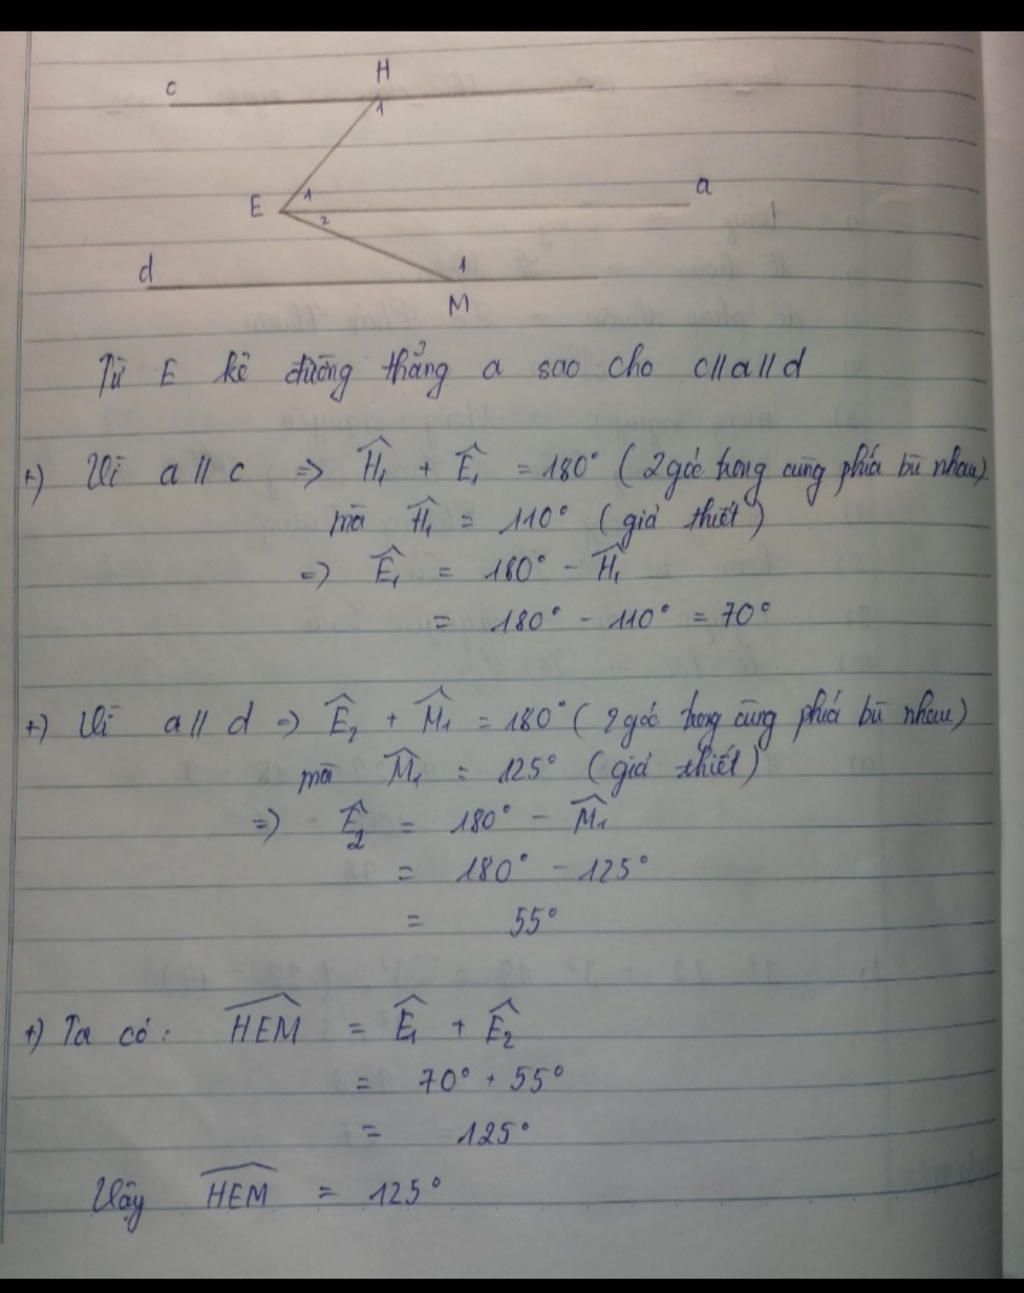 H
c
1
a
E
1
2
d
1
M
Từ E kẻ đường thẳng a sao cho c//a//d
+) Vì a // c => Ĥ₁ + Ê₁ = 180° ( 2 góc trong cùng phía bù nhau)
mà Ĥ₁ = 110° ( giả thiết )
=> Ê₁ = 180° - Ĥ₁
= 180° - 110° = 70°
+) Vì a // d => Ê₂ + M̂₁ = 180° ( 2 góc trong cùng phía bù nhau )
mà M̂₁ = 125° ( giả thiết )
=> Ê₂ = 180° - M̂₁
= 180° - 125°
= 55°
+) Ta có : HEM = Ê₁ + Ê₂
= 70° + 55°
= 125°
Vậy HEM = 125°